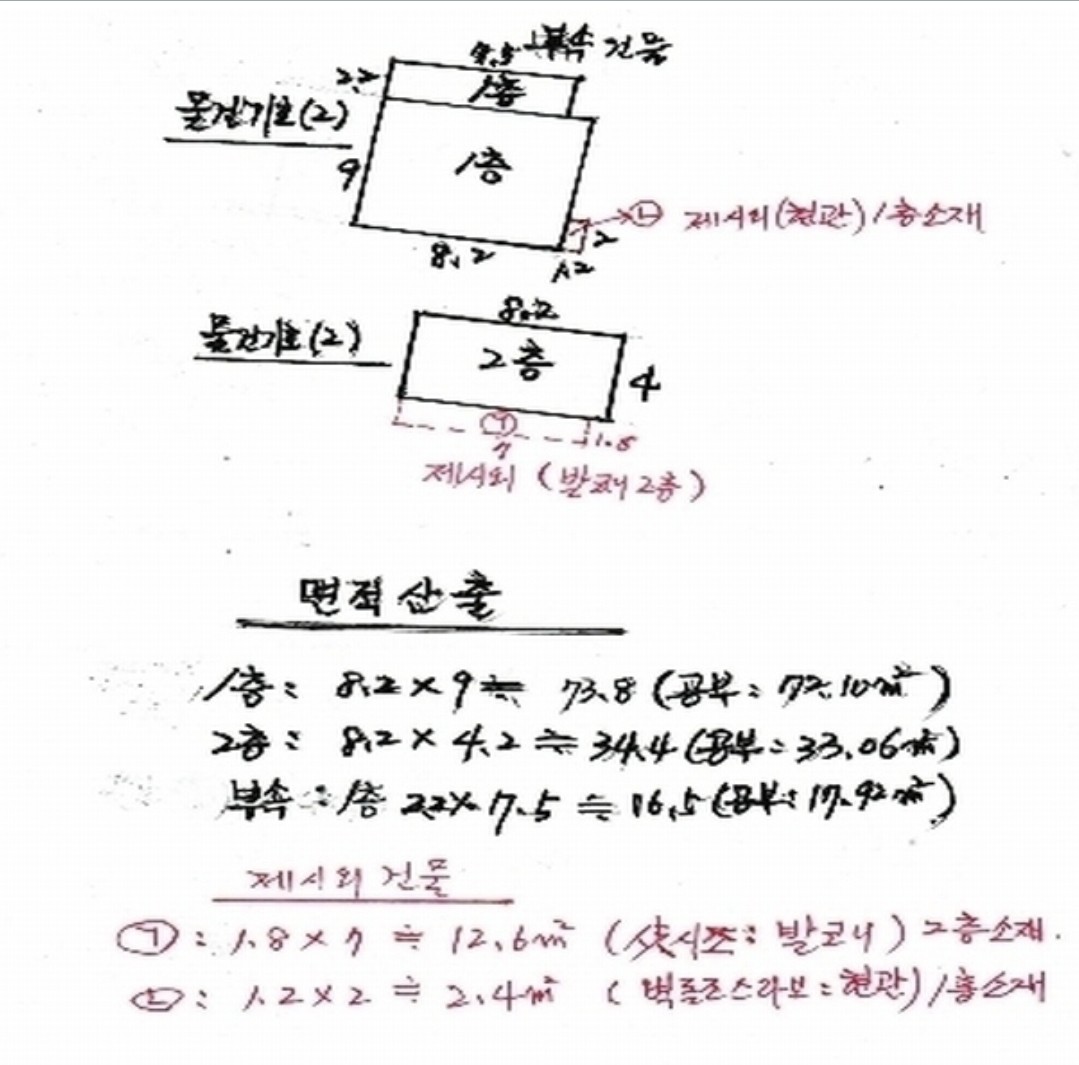 7.5 부속 건물
2.2 1층
물건기호(2)
9 1층
ㄴ 제시외(현관)1층소재
2
8.2 1.2
8.2
물건기호(2)
2층 4
ㄱ
7 1.8
제시외 (발코니 2층)
면적산출
1층 : 8.2 × 9 ≒ 73.8 (공부 : 72.10㎡)
2층 : 8.2 × 4.2 ≒ 34.4 (공부 : 33.06㎡)
부속 : 1층 2.2 × 7.5 ≒ 16.5 (공부 : 17.92㎡)
제시외 건물
㉠ : 1.8 × 7 ≒ 12.6㎡ (샷시조 : 발코니) 2층소재.
㉡ : 1.2 × 2 ≒ 2.4㎡ (벽돌조스라브 : 현관) 1층소재